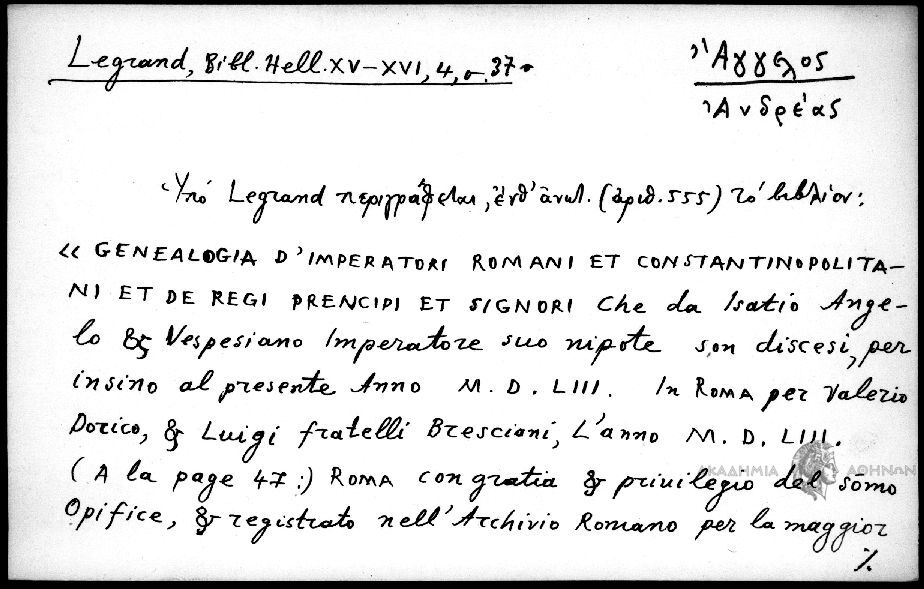 Legrand, Bibl. Hell. XV-XVI, 4, σ. 37.
Ἄγγελος
Ἀνδρέας
Ὑπό Legrand περιγράφεται, ἔνθ' ἀνωτ. (ἀριθ. 555) τό βιβλίον:
« GENEALOGIA D'IMPERATORI ROMANI ET CONSTANTINOPOLITA-
NI ET DE REGI PRENCIPI ET SIGNORI Che da Isatio Ange-
lo & Vespesiano Imperatore suo nipote son discesi, per
insino al presente Anno M. D. LIII. In ROMA per Valerio
Dorico, & Luigi fratelli Bresciani, L'anno M. D. LIII.
(A la page 47 :) ROMA con gratia & privilegio del sōmo
Opifice, & registrato nell'Archivio Romano per la maggior
%.
ΑΚΑΔΗΜΙΑ ΑΘΗΝΩΝ